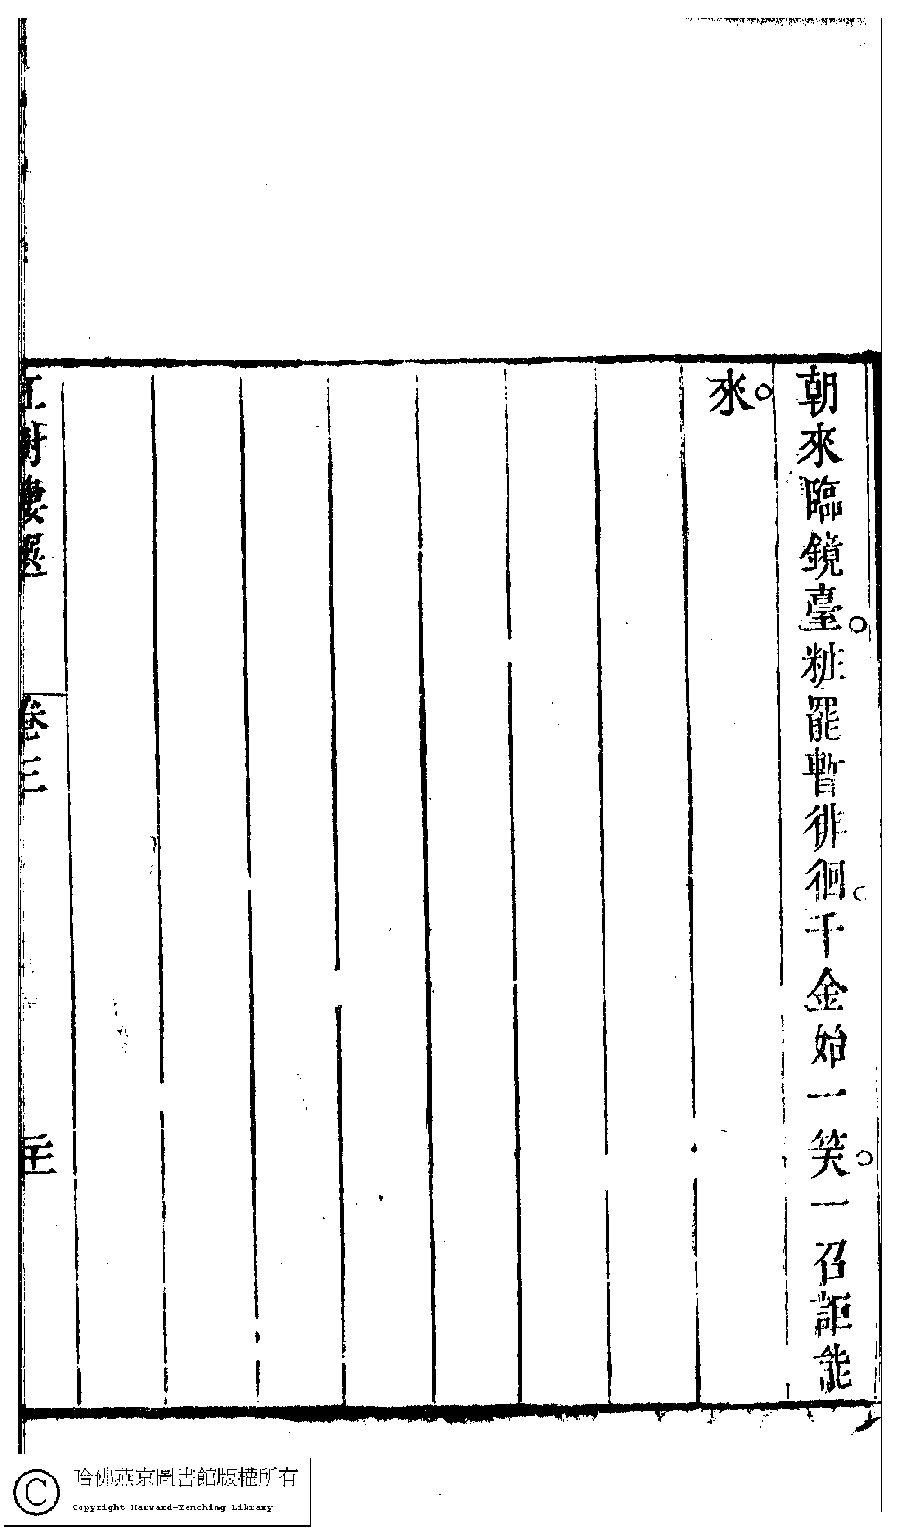 朝來臨鏡臺。粧罷暫徘徊。千金始一笑。一召詎能
來。
紅樹樓選
卷三
二十一
哈佛燕京圖書館版權所有
Copyright Harvard-Yenching Library